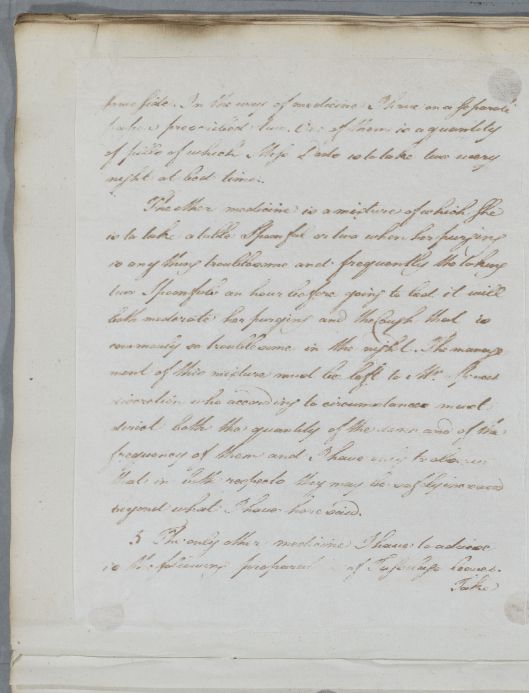 side. In the way of medicine I have on a separate
paper prescribed two. One of them is a quantity
of pills of which Miss is to take two every
night at bed time.
The other medicine is a mixture of which she
is to take a table spoonful or two when her purging
is any thing troublesome and frequently the taking
two spoonfuls an hour before going to bed it will
both moderate her purging and the cough that is
commonly so troublesome in the night. The manage
ment of this mixture must be left to Mr.
discretion who according to circumstances must
direct both the quantity of the doses and of the
frequency of them and I have only to observe
that in both respects they may be safely increased
beyond what I have here said.
5 The only other medicine I have to advise
is the following of leaves.
Take